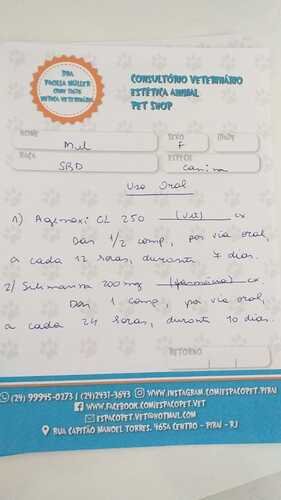 DRA
PRISCILA MÜLLER
CRMV 11676
MÉDICA VETERINÁRIA
CONSULTÓRIO VETERINÁRIO
ESTÉTICA ANIMAL
PET SHOP
NOME Mel SEXO F IDADE
RAÇA SRD ESPÉCIE canina
Uso oral
1) Agemoxi CL 250 (vet) cx
Dar 1/2 comp, por via oral,
a cada 12 horas, durante 7 dias.
2) Silimarina 200mg (farmácia) cx
Dar 1 comp, por via oral,
a cada 24 horas, durante 10 dias.
RETORNO
(24) 99945-0273 / (24)2431-3643 WWW.INSTAGRAM.COM/ESPACOPET.PIRAI
WWW.FACEBOOK.COM/ESPACOPET.VET
ESPACOPET.VET@HOTMAIL.COM
RUA CAPITÃO MANOEL TORRES, 465A CENTRO - PIRAÍ - RJ